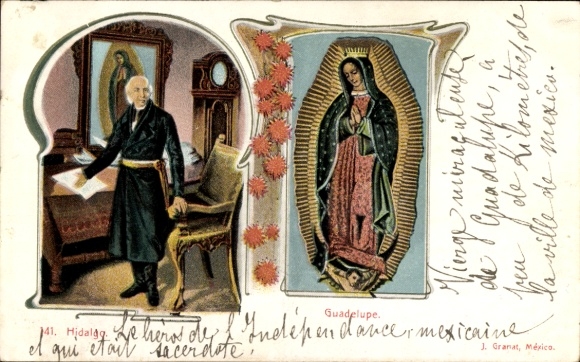 Vierge miraculeuse
de Guadalupe, à
peu de Kilomètres de
la ville de mexico.
Guadelupe.
41. Hidalgo. Le héros de l'Indépendance mexicaine
et qui était sacerdote.
J. Granat, México.